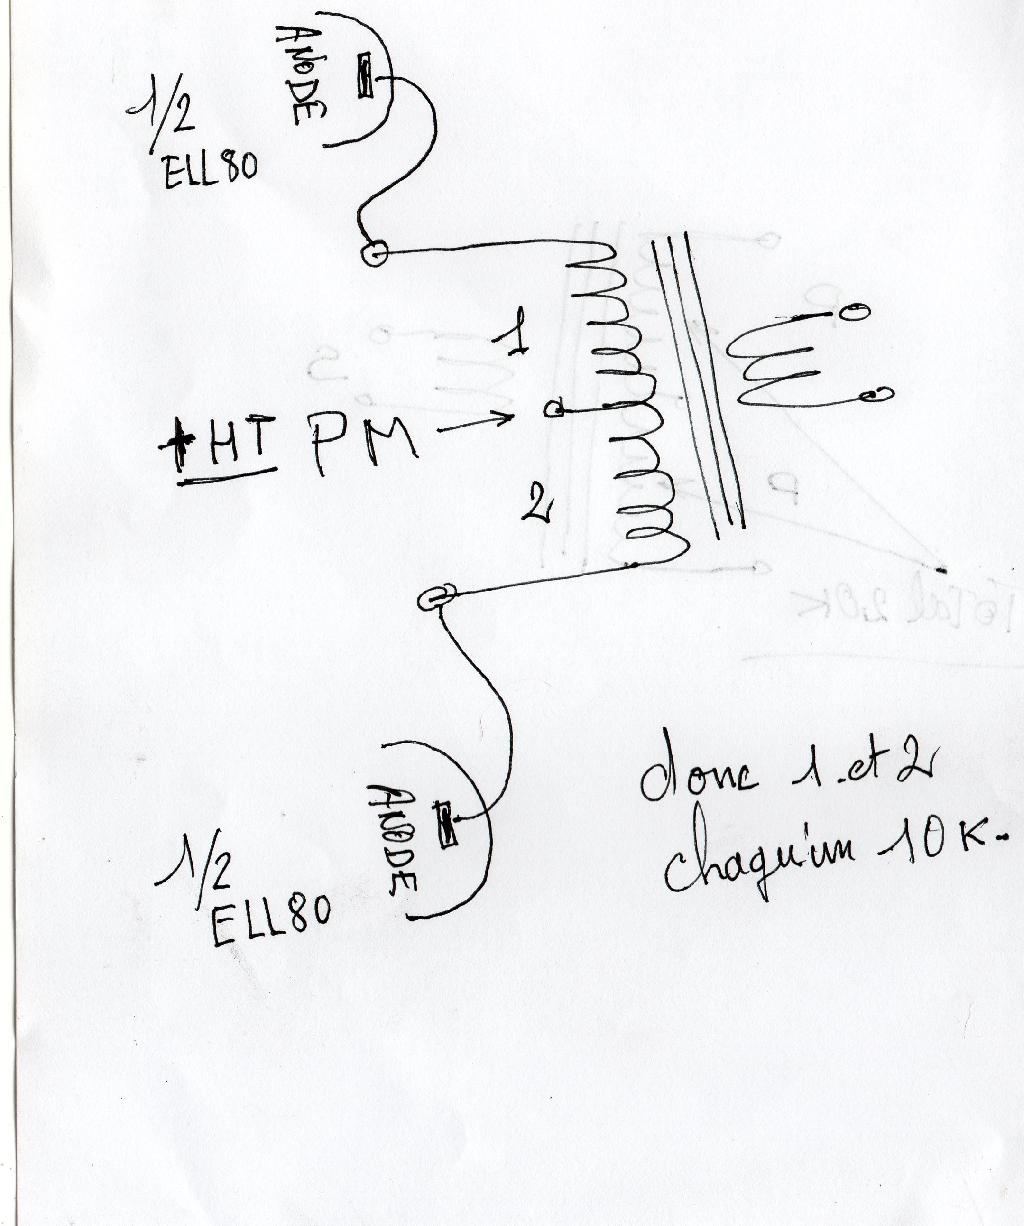 ANODE
1/2
ELL80
1
+HT PM
2
donc 1.et 2
chaqu'un 10K.
ANODE
1/2
ELL80
Total 20K
P
P
S